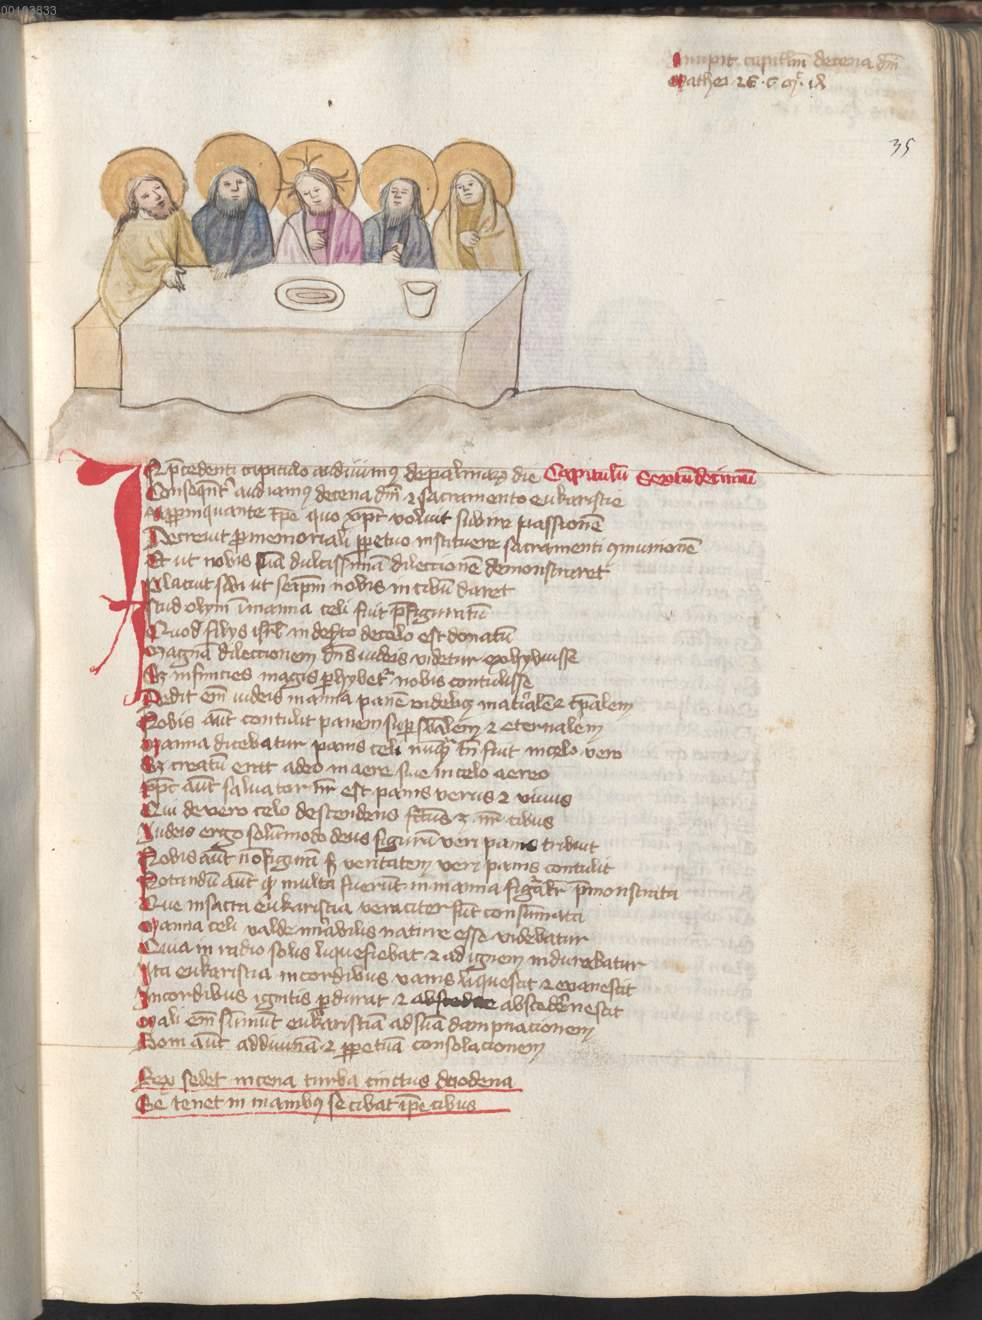 00103833
Incipit capitulm de cena dni
Mathei 26
35
In pcedenti capitulo audivimus de palmarum die Capitulu Sextudecimu
Consequent audiamus de cena dni et sacramento eukaristie
Appropinquante tpe quo xpc voluit subire passione
Decrevit p memoriali ppetuo instituere sacramenti comunione
Et ut nobis sua dulcissima dileccione demonstraret
Placuit sibi ut seipm nobis in cibu daret
Istud olym i manna celi fuit pfiguratu
Quod filiis isrl in deserto de celo est donatu
Magna dileccionem dns iudeis videtur exhybuisse
Sed infinicies magis phybetur nobis contulisse
Dedit em iudeis manna pane videlicet material et tpalem
Nobis aut contulit panem supersubstancialem et eternalem
Manna dicebatur panis celi nuqua tn fuit in celo vero
Sed creatu erat a deo in aere sive in celo aereo
xpc aut salvator nr est panis verus et vivus
Qui de vero celo descendens fctus est nr cibus
Iudeis ergo solumodo deus figura veri panis tribuit
Nobis aut no figura sed veritatem veri panis contulit
Notandu aut quod multa fuerut in manna figuralr pmonstrata
Que in sacra eukaristia veraciter sunt consumata
Manna celi valde mirabilis nature esse videbatur
Quia in radio solis liquefiebat et ad ignem indurabatur
Ita eukaristia in cordibus vanis liquescit et evanescit
In cordibus ignitis pdurat et abscedere nescit
Mali em sumut eukaristia ad sua dampnacionem
Boni aut ad divina et ppetua consolacionem
Rex sedet in cena turba cinctus duodena
Se tenet in manibus se cibat ipe cibus